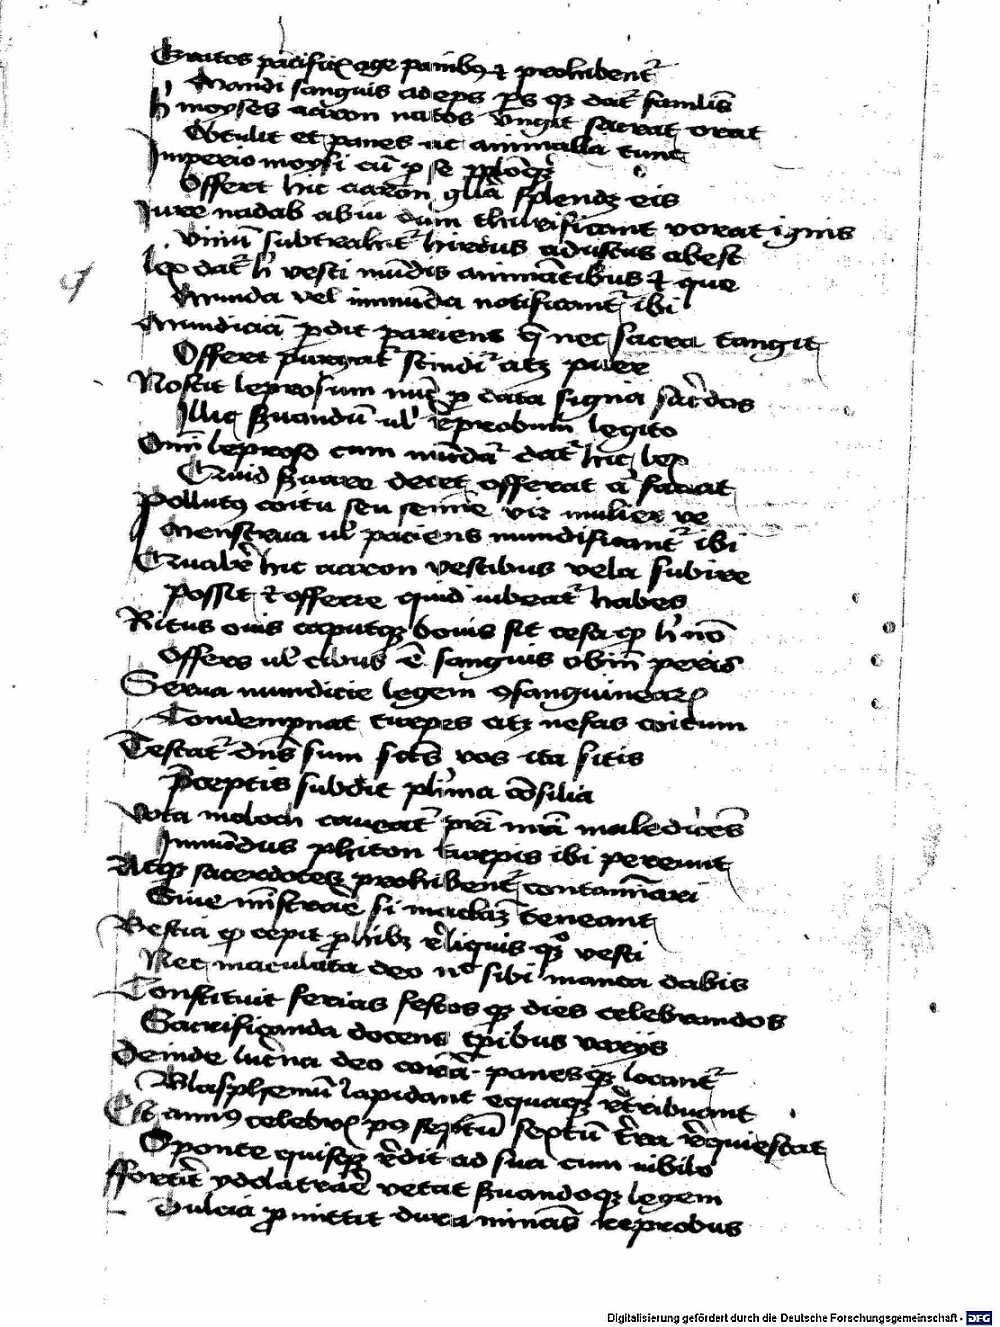 Grates pacificꝫ age panibꝰ ⁊ prohibent᷑
Mandi sanguis adeps ps qꝫ dat᷑ famlis
h moyses aaron natos ungit sacrat orat
Obtulit et panes ac animalia tunc
Imperio moysi cū p se
Offert hic aaron gl̄ia splendꝫ eis
Iure nadab abiu dum thurificant vorat ignis
Vinū subtrahit᷑ hircus adustus abest
lex dat᷑ h vesti mūdis animātibus ⁊ que
Munda vel immūda notificant᷑ ibi
Mundiciā pdit pariens q̄ nec sacra tangit
Offert purgat᷑ scindi᷑ atqꝫ puer
Noscit leprosum nūc p data signa sac̄dos
Illic suandū ul reprobum legito
Om̄i leproso cum mūdat᷑ dat᷑ hic lex
Quid suare decet offerat a faciat
Pollutꝰ coitu seu semīe vir mulier ve
Menstrua ul paciens mundificant᷑ ibi
Qualit᷑ hic aaron vestibus vela subire
Possit ⁊ offerre quid iubeat᷑ habes
Ritus ovis caputqꝫ bovis sit cesa qp h nō
Offers ul cibus ē sanguis obīn peris
Serva mundicie legem ꝯsanguinearꝫ
Condempnat turpes atqꝫ nefas coitum
Testat᷑ dn̄s sum sctūs vos ita sitis
P̄ceptis subdit plīma cōsilia
Vota moloch caveat᷑ pri mri maledicēs
Immūdus phiton turpis ibi pereunt
Atqꝫ sacerdotes prohibent᷑ contamīari
Sive mīstrare si mactāt teneant
Bestia qp cepit prohibꝫ reliquis qꝫ vesti
Nec maculata deo nc sibi manca dabis
Constituit ferias festos qꝫ dies celebrandos
Sacrificanda docens tp̄ibus variis
Deinde lucna deo corā panesqꝫ locant᷑
Blasphemū lapidant equaqꝫ retribuant
Est annꝰ celebrꝫ pꝰ septū septū tra requiescat
Sponte quisqꝫ redit ad sua cum iubilo
ffortit᷑ ydolatrare vetat suandoqꝫ legem
Dulcia p̄mittit dura minās reprobus
Digitalisierung gefördert durch die Deutsche Forschungsgemeinschaft - DFG